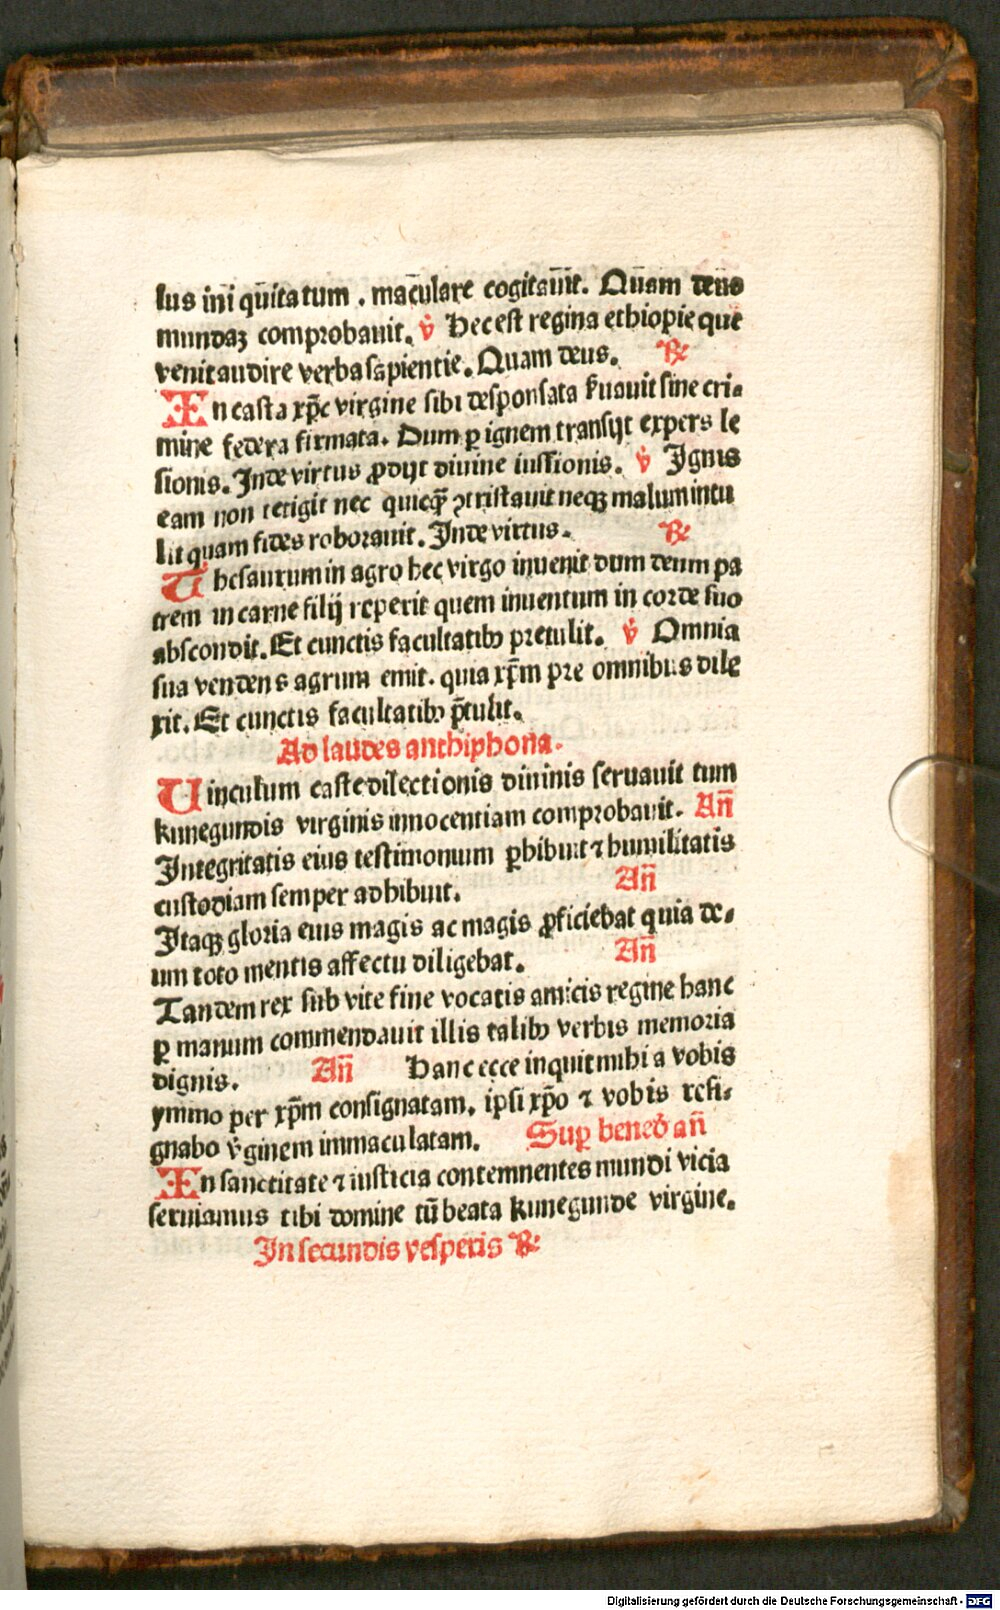 lus ini qūitatum . mac̄ulare cogitauīt. Quam deus
mundaꝫ comprobauit. ℣ Hec est regina ethiopie que
venit audire verba sapientie. Quam deus. ℟
In casta xp̄c virgine sibi desponsata ẜuauit sine cri-
mine federa firmata. Dum ꝑ ignem transijt expers le
sionis. Inde virtus ꝓdijt diuine iussionis. ℣ Ignis
eam non tetigit nec quicꝙ̄ ꝯtristauit neqꝫ malum intu
lit quam fides roborauit. Inde virtus. ℟
Thesaurum in agro hec virgo inuenit dum deum pa
trem in carne filij reperit quem inuentum in corde suo
abscondit. Et cunctis facultatibꝰ pretulit. ℣ Omnia
sua vendens agrum emit. quia xp̄m pre omnibus dile
xit. Et cunctis facultatibꝰ p̄tulit.
Ad laudes anthiphona.
Uinculum caste dilectionis diuinis seruauit tum
kunegundis virginis innocentiam comprobauit. An̄
Integritatis eius testimonium ꝑhibuit ⁊ humilitatis
custodiam semper adhibuit. An̄
Itaqꝫ gloria eius magis ac magis ꝓficiebat quia de-
um toto mentis affectu diligebat. An̄
Tandem rex sub vite fine vocatis amicis regine hanc
ꝑ manum commendauit illis talibꝰ verbis memoria
dignis. An̄ Hanc ecce inquit mihi a vobis
ymmo per xp̄m consignatam. ipsi xp̄o ⁊ vobis resi-
gnabo v̄ginem immaculatam. Suꝑ bened̄ an̄
In sanctitate ⁊ iusticia contemnentes mundi vicia
seruiamus tibi domine cū beata kunegunde virgine.
In secundis vesperis ℟
Digitalisierung gefördert durch die Deutsche Forschungsgemeinschaft - DFG